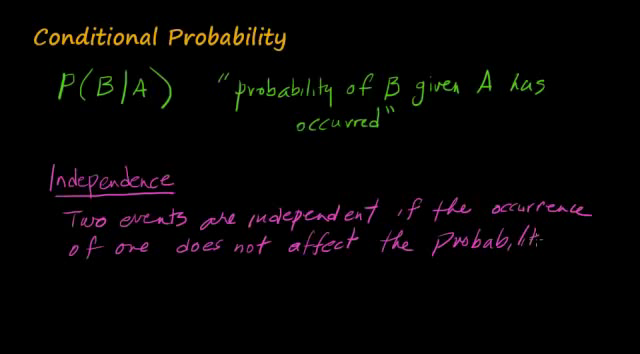 Conditional Probability
P(B/A) "probability of B given A has
occurred"
Independence
Two events are independent if the occurrence
of one does not affect the probabilit